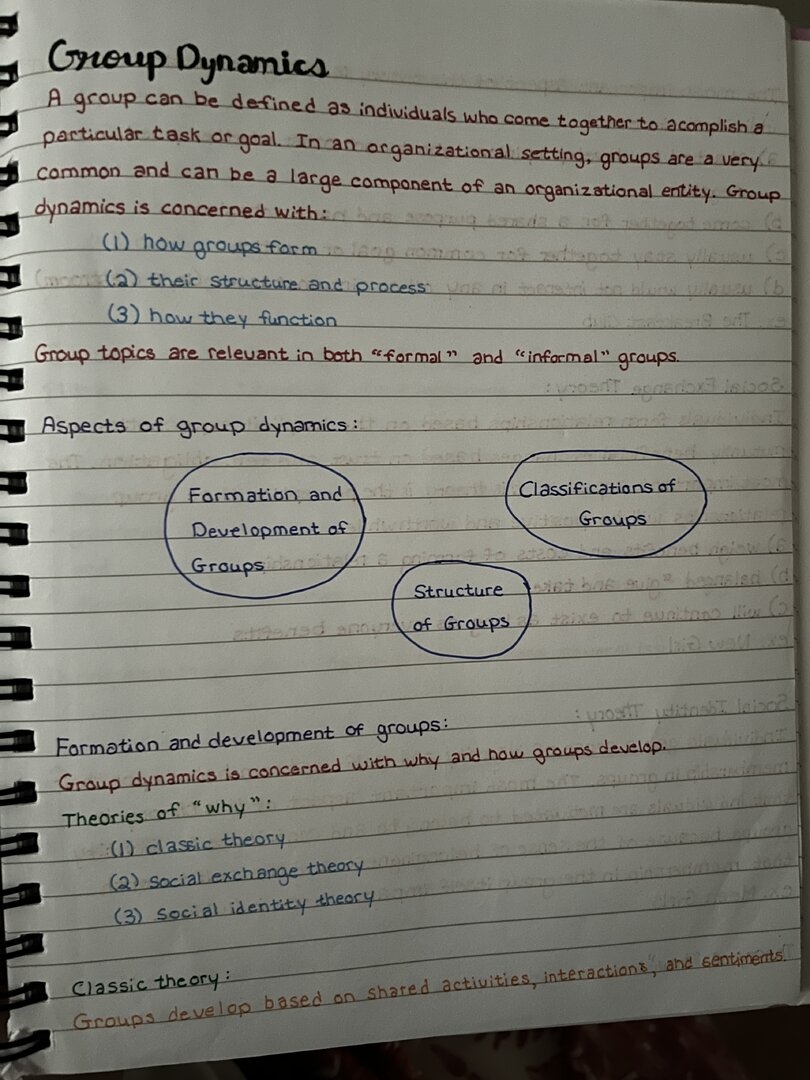 Group Dynamics
A group can be defined as individuals who come together to acomplish a
particular task or goal. In an organizational setting, groups are a very
common and can be a large component of an organizational entity. Group
dynamics is concerned with:
(1) how groups form
(2) their structure and process
(3) how they function
Group topics are relevant in both "formal" and "informal" groups.
Aspects of group dynamics:
Formation and
Development of
Groups
Classifications of
Groups
Structure
of Groups
Formation and development of groups:
Group dynamics is concerned with why and how groups develop.
Theories of "why":
(1) classic theory
(2) social exchange theory
(3) social identity theory
Classic theory:
Groups develop based on shared activities, interactions, and sentiments.